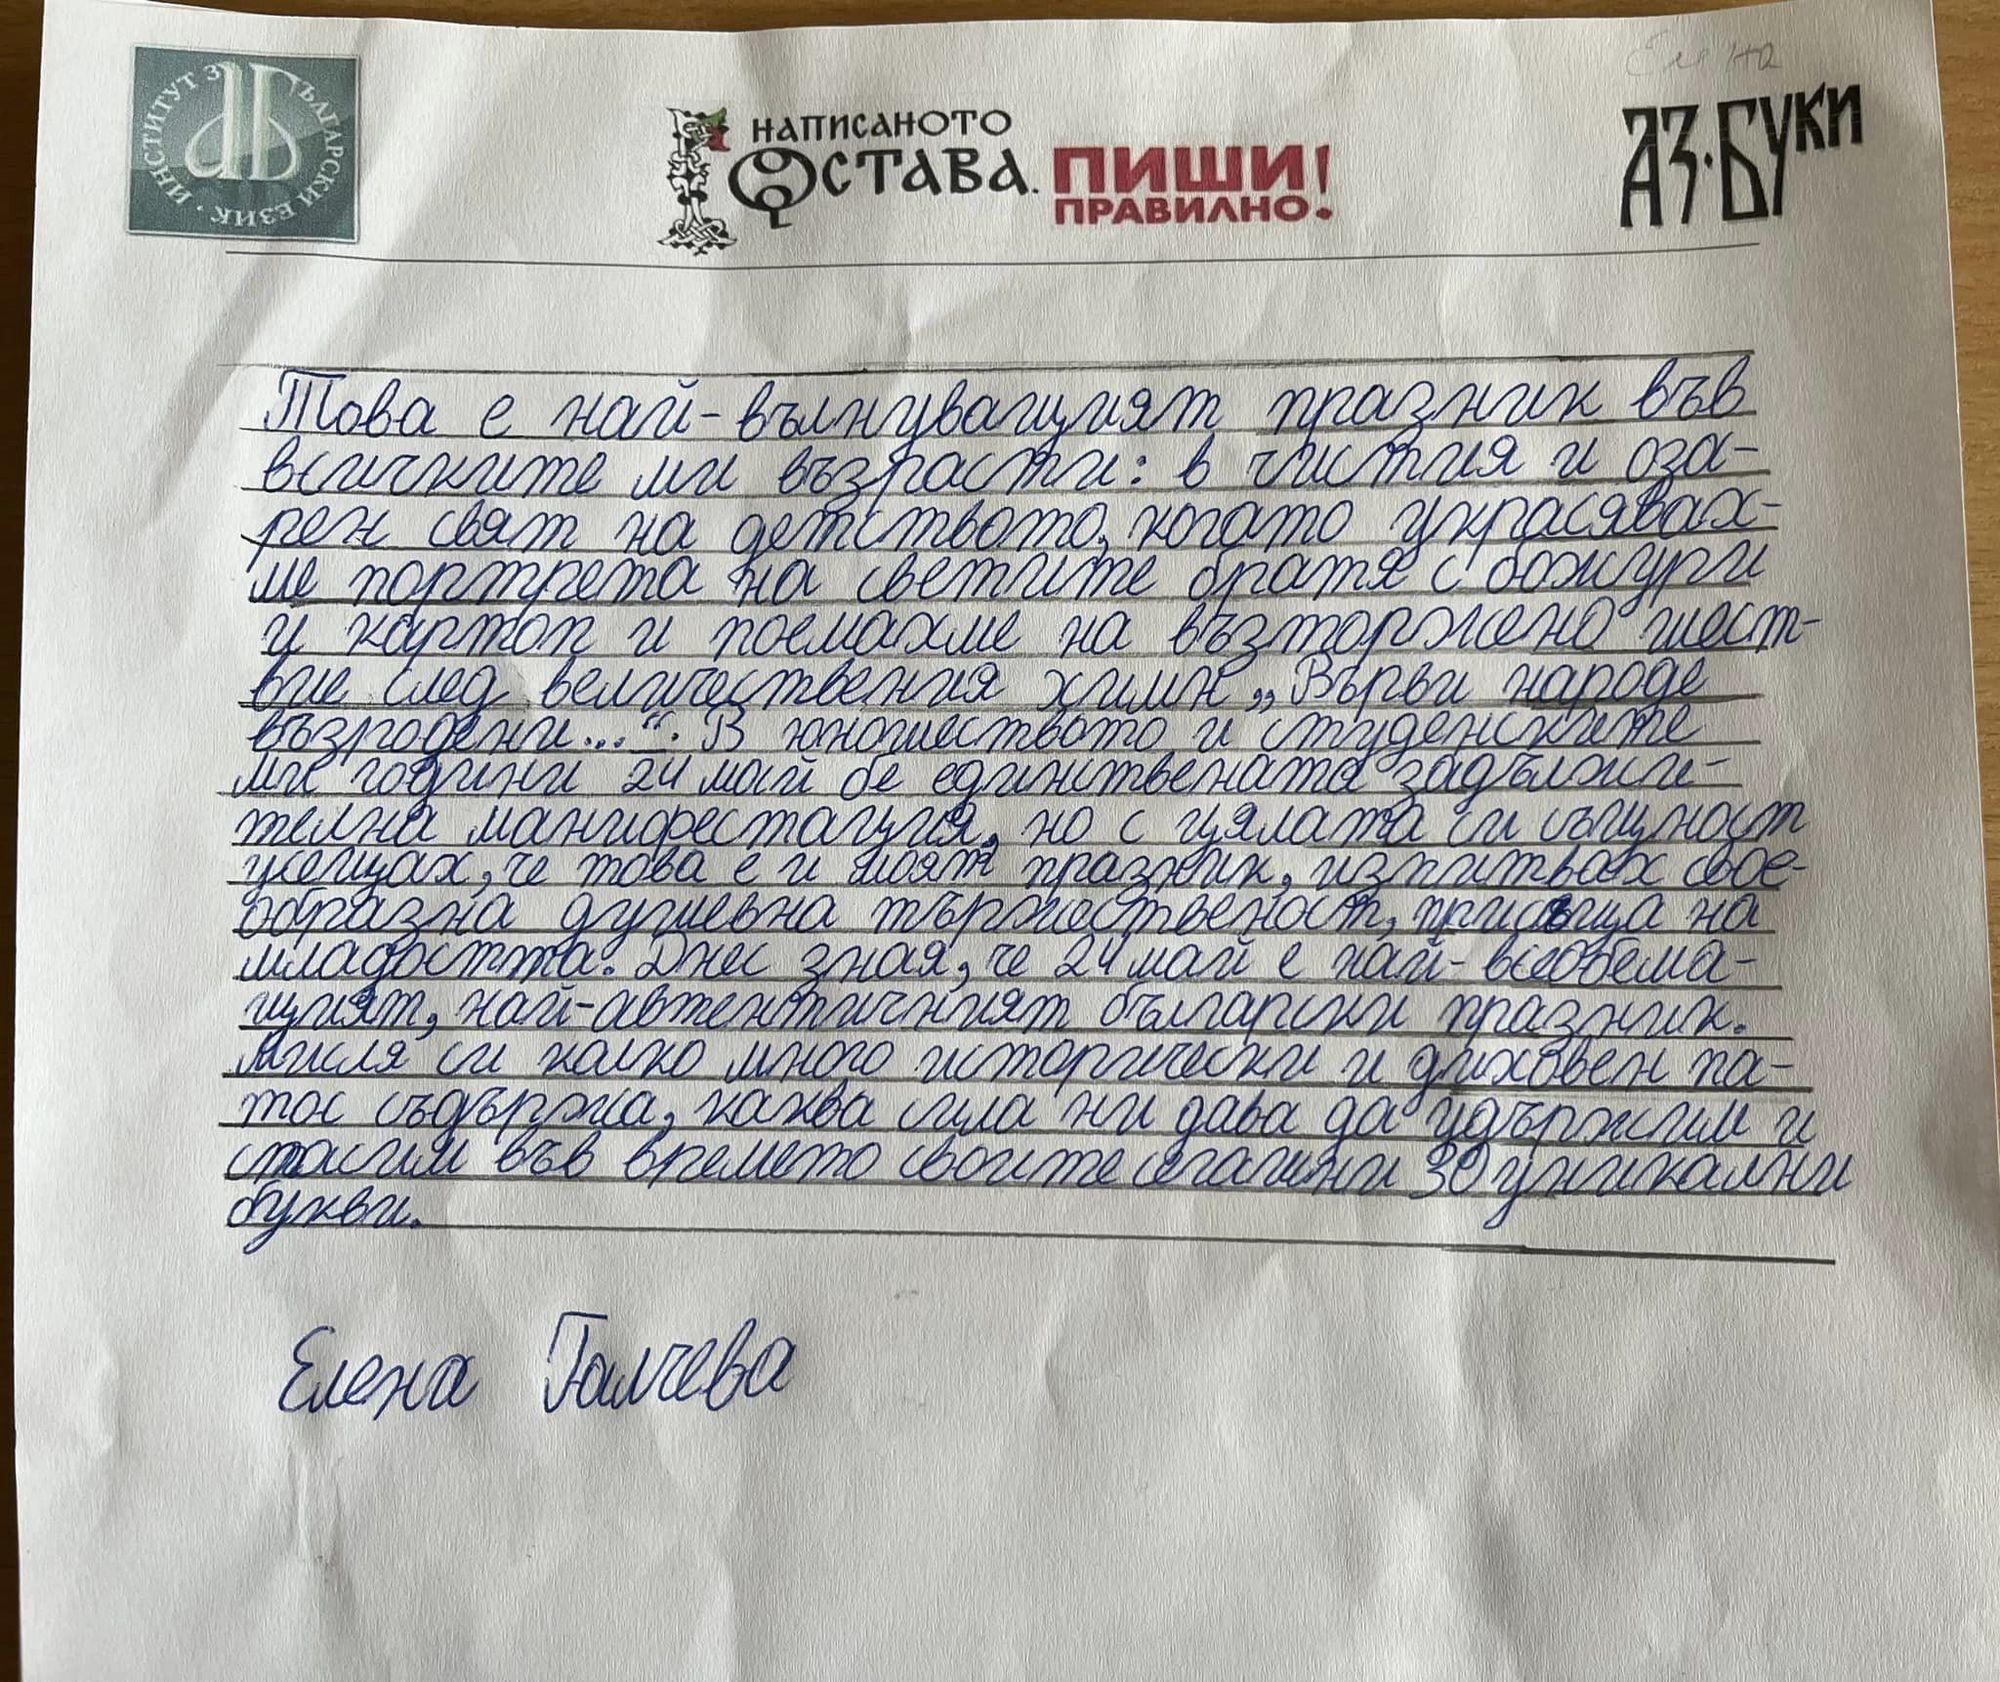 Елена
ИНСТИТУТ ЗА БЪЛГАРСКИ ЕЗИК
НАПИСАНОТО
ОСТАВА.
ПИШИ
ПРАВИЛНО!
АЗ·БУКИ
Това е най-вълнуващият празник във
всичките ми възрасти: в чистия и оза-
рен свят на детството, когато украсявах-
ме портрета на светите братя с божури
и картон и поемахме на възторжено шест-
вие след величествения химн „Върви народе
възродени...“. В юношеството и студенските
ми години 24 май бе единствената задължи-
телна манифестация, но с цялата си същност
усещах, че това е и моят празник, изпитвах свое-
образна душевна тържественост, присъща на
младостта. Днес зная, че 24 май е най-всеобема-
щият, най-автентичният български празник.
Мисля си колко много исторически и духовен па-
тос съдържа, каква сила ни дава да удържим и
спасим във времето своите сегашни 30 уникални
букви.
Елена Галчева